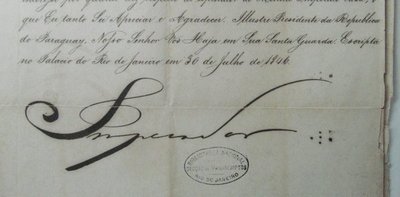 que Eu tanto Sei Apreciar e Agradecer. Illustre Presidente da Republica
do Paraguay, Nosso Senhor Vos Haja em Sua Santa Guarda. Escripta
no Palacio do Rio de Janeiro em 30 de Julho de 1846.
Imperador
BIBLIOTHECA NACIONAL
RIO DE JANEIRO